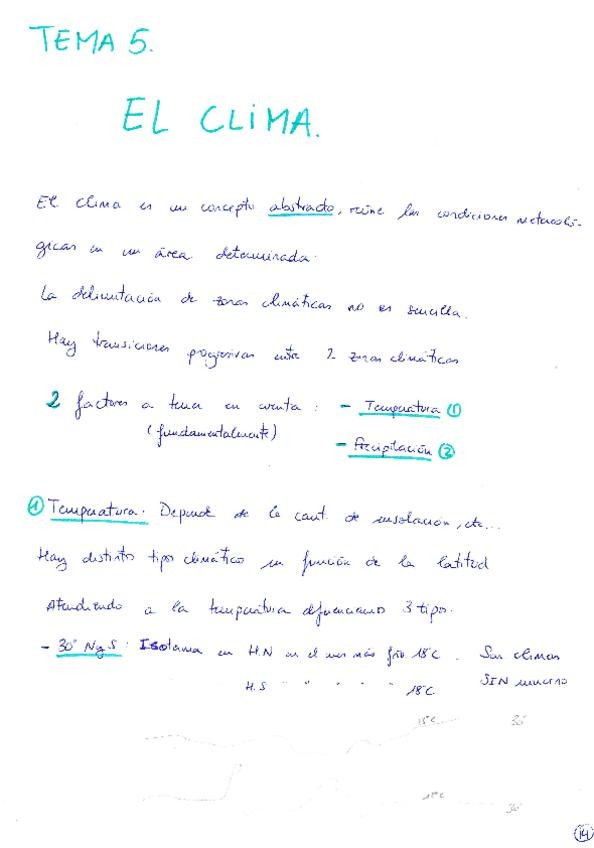 TEMA 5.
EL CLIMA.
El clima es un concepto abstracto, reúne las condiciones meteoroló-
gicas en un área determinada.
La delimitación de zonas climáticas no es sencilla.
Hay transiciones progresivas entre 2 zonas climáticas
2 factores a tener en cuenta : - Temperatura ①
(fundamentalmente)
- Precipitación ②
① Temperatura. Depende de la cant. de insolación, etc...
Hay distinto tipo climático en función de la latitud
Atendiendo a la temperatura diferenciamos 3 tipos.
- 30° N y S : Isoterma en H.N en el mes más frío 18°C. Son climas
H.S " " " " " 18°C. SIN invierno
18°C 30°
18°C 30°
14